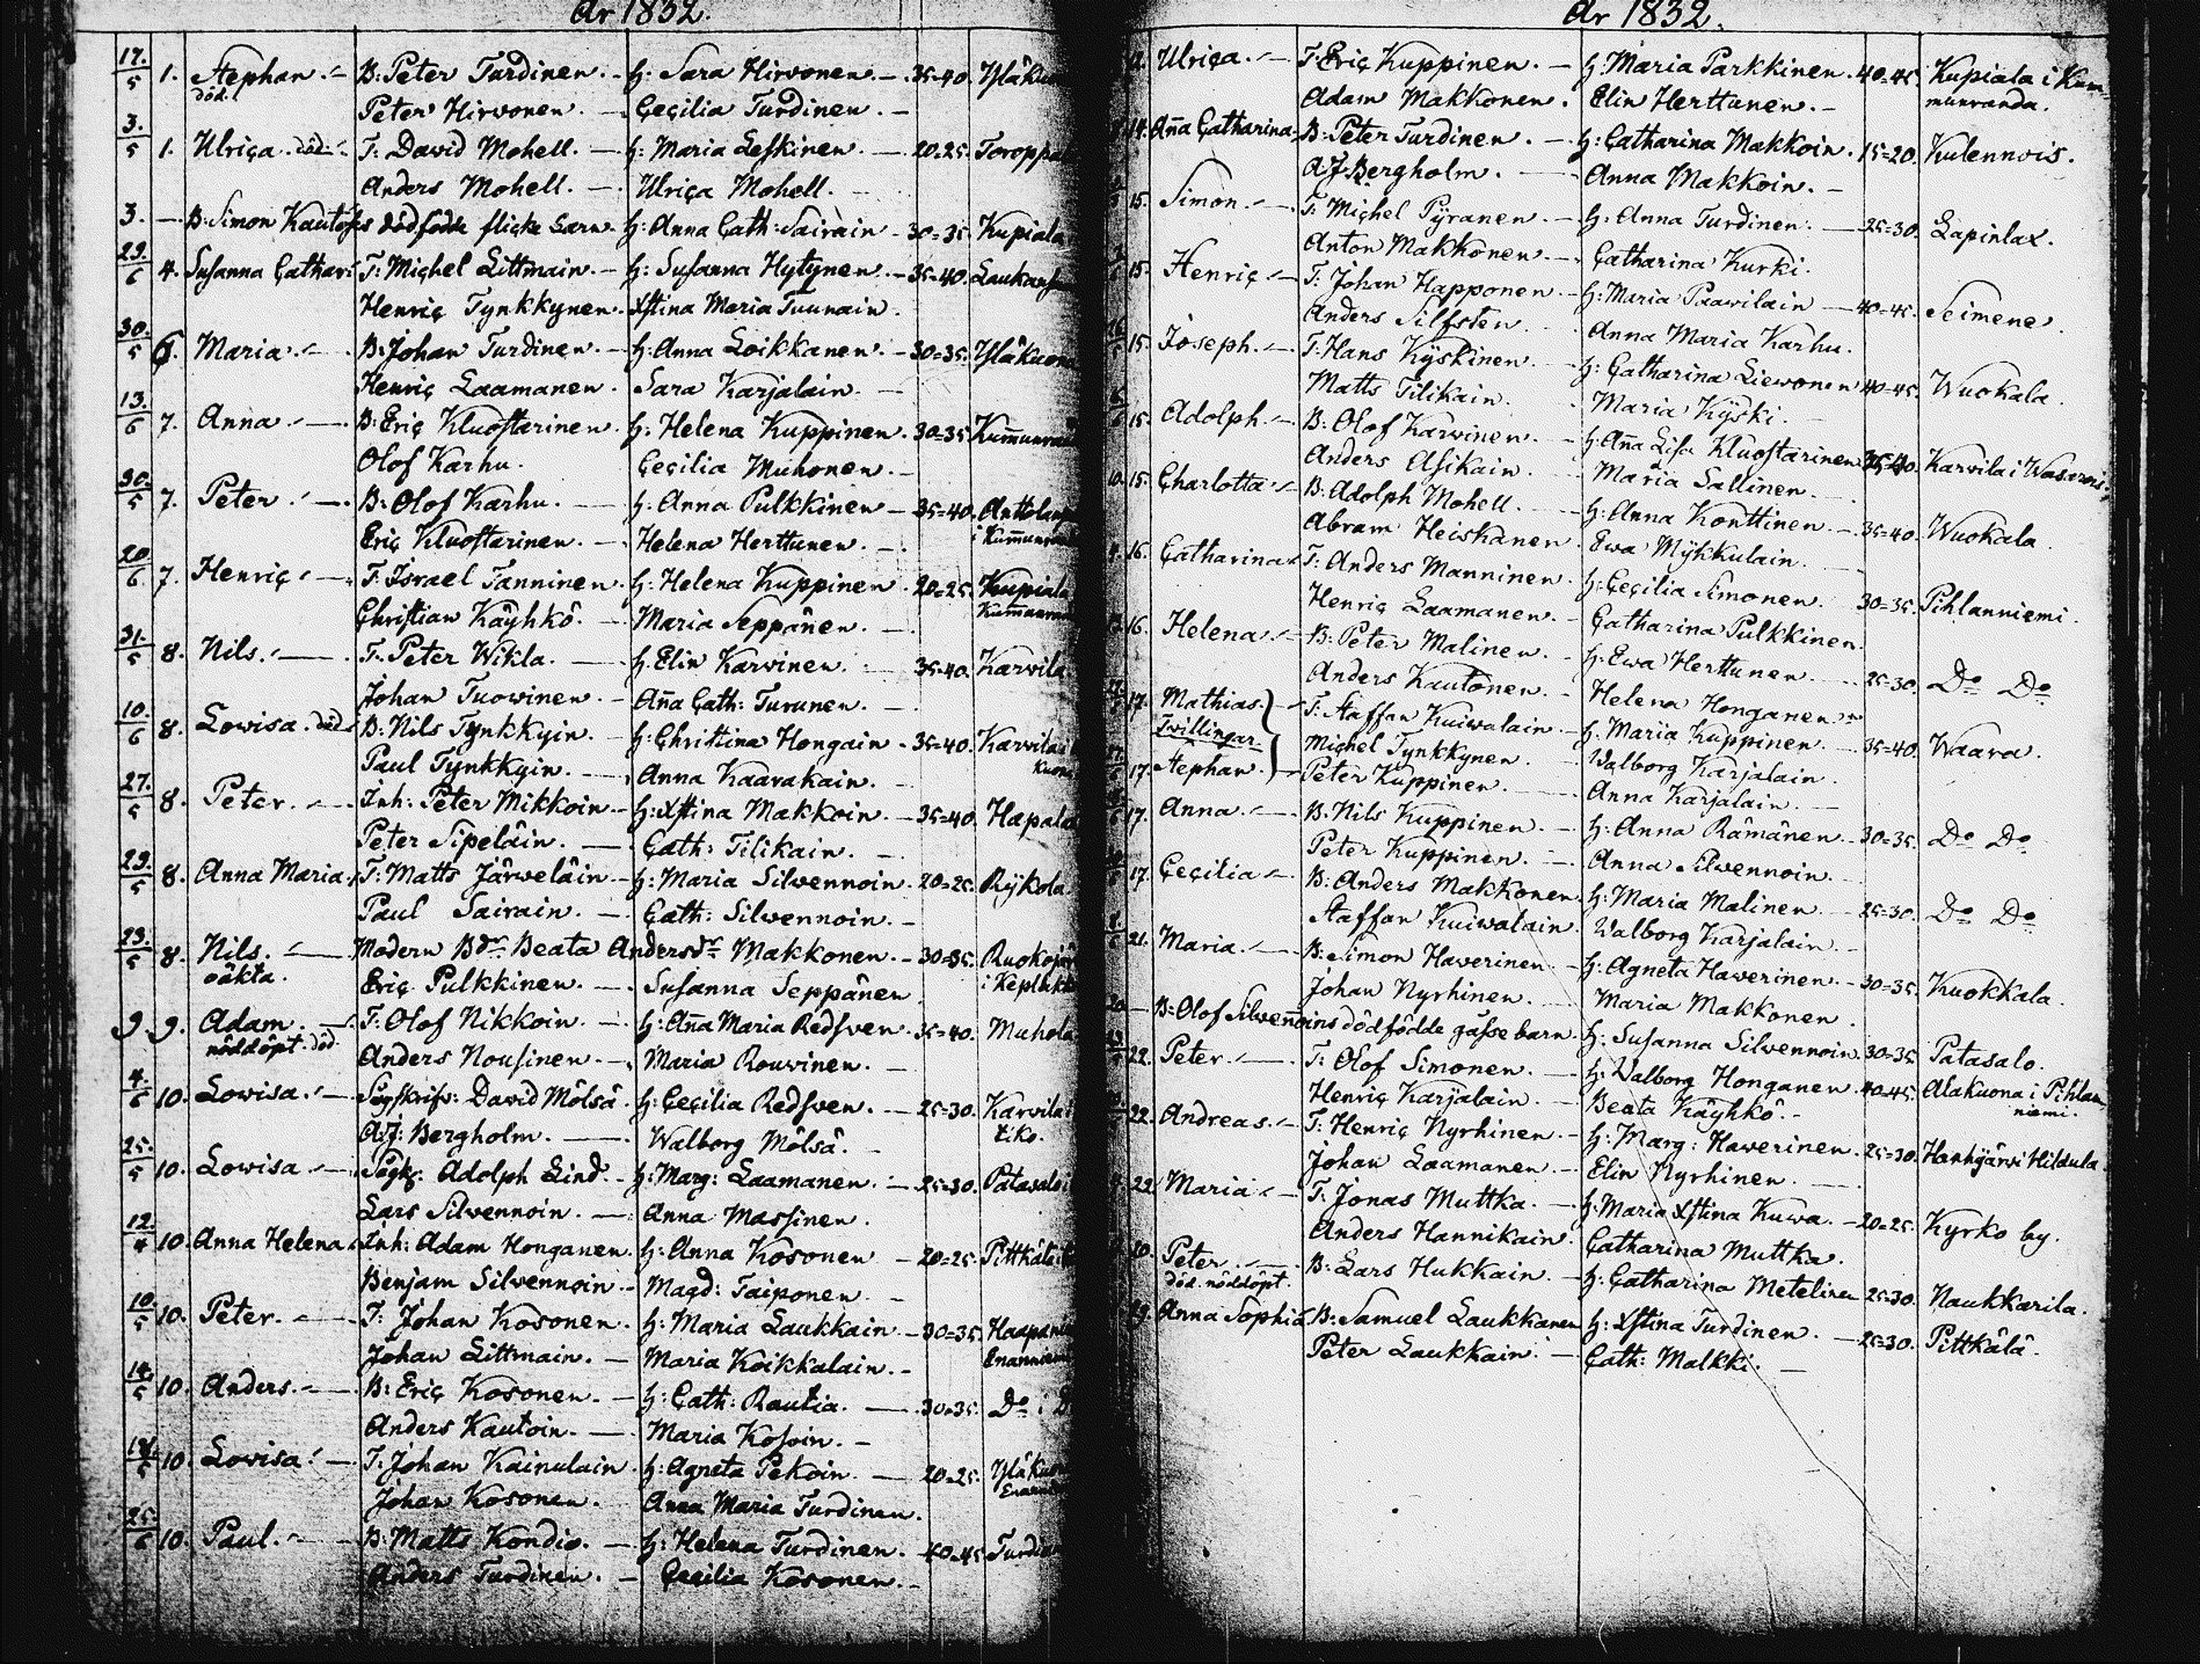 År 1832.
17/5 1. Stephan. död. B: Peter Turdinen. H: Sara Hirvonen. 35=40.
Peter Hirvonen. Cecilia Turdinen.
3/5 1. Ulrica. död. T: David Mohell. H: Maria Leskinen. 20=25.
Anders Mohell. Ulrica Mohell.
3. — B: Simon dödfödde flicke barn. H: Anna Cath: Sairain. 30=35. Kupiala
29/6 4. Susanna T: Michel Littmain. H: Susanna Hytynen. 35=40.
Henric Tynkkynen. Xstina Maria Tuunain.
30/5 6. Maria. B: Johan Turdinen. H: Anna Loikkanen. 30=35.
Henric Laamanen. Sara Karjalain.
13/6 7. Anna. B: Eric Kluostarinen. H: Helena Kuppinen. 30=35.
Olof Karhu. Cecilia Muhonen.
30/5 7. Peter. B: Olof Karhu. H: Anna Pulkkinen. 35=40.
Eric Kluostarinen. Helena Herttunen.
20/6 7. Henric. T: Israel Tanninen. H: Helena Kuppinen. 20=25. Kupiala
Christian Käyhkö. Maria Seppänen.
31/5 8. Nils. T: Peter Wikla. H: Elin Karvinen. 35=40. Karvila
Johan Tuovinen. Aña Cath: Turunen.
10/6 8. Lovisa. död. B: Nils Tynkkyin. H: Christina Hongain. 35=40.
Paul Tynkkyin. Anna Kaavakain.
27/5 8. Peter. Inh: Peter Mikkoin. H: Xstina Makkoin. 35=40.
Peter Sipeläin. Cath: Tilikain.
29/5 8. Anna Maria. T: Matts Järveläin. H: Maria Silvennoin. 20=25. Rÿkola
Paul Sairain. Cath: Silvennoin.
23/5 8. Nils. oäkta. Modern Bdr Beata Andersdr Makkonen. 30=35.
Eric Pulkkinen. Susanna Seppänen.
9. 9. Adam. nöddöpt. död. T: Olof Nikkoin. H: Aña Maria Redsven. 35=40. Muhola
Anders Nousinen. Maria Rouvinen.
4/6 10. Lovisa. David Mölsä. H: Cecilia Redsven. 25=30.
A: J: Bergholm. Walborg Mölsä.
25/5 10. Lovisa. Adolph Lind. H: Marg: Laamanen. 25=30.
Lars Silvennoin. Anna Massinen.
12/4 10. Anna Helena. Inh: Adam Honganen. H: Anna Kosonen. 20=25.
Benjam Silvennoin. Magd: Taiponen.
10/5 10. Peter. T: Johan Kosonen. H: Maria Laukkain. 30=35.
Johan Littmain. Maria Koikkalain.
14/5 10. Anders. B: Eric Kosonen. H: Cath: Rautia. 30=35.
Anders Kautoin. Maria Kosoin.
10. Lovisa. T: Johan Kainulain. H: Agneta Pekoin. 20=25.
Johan Kosonen. Anna Maria Turdinen.
25/6 10. Paul. B: Matts Kondio. H: Helena Turdinen. 40=45.
Anders Turdinen. Cecilia Kosonen.
År 1832.
Ulrica. T: Eric Kuppinen. H: Maria Parkkinen. 40=45. Kupiala i Kum-
Adam Makkonen. Elin Herttunen. munranda.
14. Aña Catharina. B: Peter Turdinen. H: Catharina Makkoin. 15=20. Kulennois.
A J Bergholm. Anna Makkoin.
15. Simon. T: Michel Pÿranen. H: Anna Turdinen. 25=30. Lapinlax.
Anton Makkonen. Catharina Kurki.
15. Henric. T: Johan Happonen. H: Maria Paavilain. 40=45. Seimene.
Anders Silfsten. Anna Maria Karhu.
15. Joseph. T: Hans Kÿskinen. H: Catharina Lievonen 40=45. Wuokala.
Matts Tilikain. Maria Kÿski.
15. Adolph. B: Olof Karvinen. H: Aña Lisa Kluostarinen. Karvila i
Anders Asikain. Maria Sallinen.
15. Charlotta. B: Adolph Mohell. H: Anna Konttinen. 35=40. Wuokala.
Abram Heiskanen. Ewa Mÿkkulain.
16. Catharina. T: Anders Manninen. H: Cecilia Simonen. 30=35. Pihlanniemi.
Henric Laamanen. Catharina Pulkkinen.
16. Helena. B: Peter Malinen. H: Ewa Herttunen. 25=30. Do Do
Anders Kautonen. Helena Honganen.
17. Mathias. Tvillingar. T: Staffan Kuivalain. H: Maria Kuppinen. 35=40. Waara.
Michel Tynkkynen. Walborg Karjalain.
17. Stephan. Peter Kuppinen. Anna Karjalain.
17. Anna. B: Nils Kuppinen. H: Anna Rämänen. 30=35. Do Do
Peter Kuppinen. Anna Silvennoin.
17. Cecilia. B: Anders Makkonen. H: Maria Malinen. 25=30. Do Do
Staffan Kuivalain. Walborg Karjalain.
21. Maria. B: Simon Haverinen. H: Agneta Haverinen. 30=35. Kuokkala.
Johan Nyrhinen. Maria Makkonen.
— B: Olof Silvennoins dödfödde gåsse barn. H: Susanna Silvennoin. 30=35. Patasalo.
22. Peter. T: Olof Simonen. H: Walborg Honganen. 40=45. Alakuona i Pihlan-
Henric Karjalain. Beata Käyhkö. niemi.
22. Andreas. T: Henric Nyrhinen. H: Marg: Haverinen. 25=30. Hanhijärvi Hildula.
Johan Laamanen. Elin Nyrhinen.
22. Maria. T: Jonas Muttka. H: Maria Xstina Kuwa. 20=25. Kyrko by.
Anders Hannikain. Catharina Muttka.
20. Peter. död. nöddöpt. B: Lars Hukkain. H: Catharina Metelinen 25=30. Naukkarila.
29. Anna Sophia. B: Samuel Laukkanen H: Xstina Turdinen. 25=30. Pittkälä.
Peter Laukkain. Cath: Malkki.